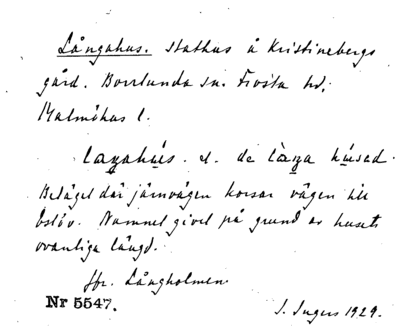 Långahus. stathus å Kristinebergs
gård. Borrlunda sn. Frosta hd,
Malmöhus l.
laŋahús. el. de làŋa húsad.
Beläget där järnvägen korsar vägen till
Östöv. Namnet givet på grund av husets
ovanliga längd.
Jfr. Långholmen
Nr 5547.
J. Ingers 1929.